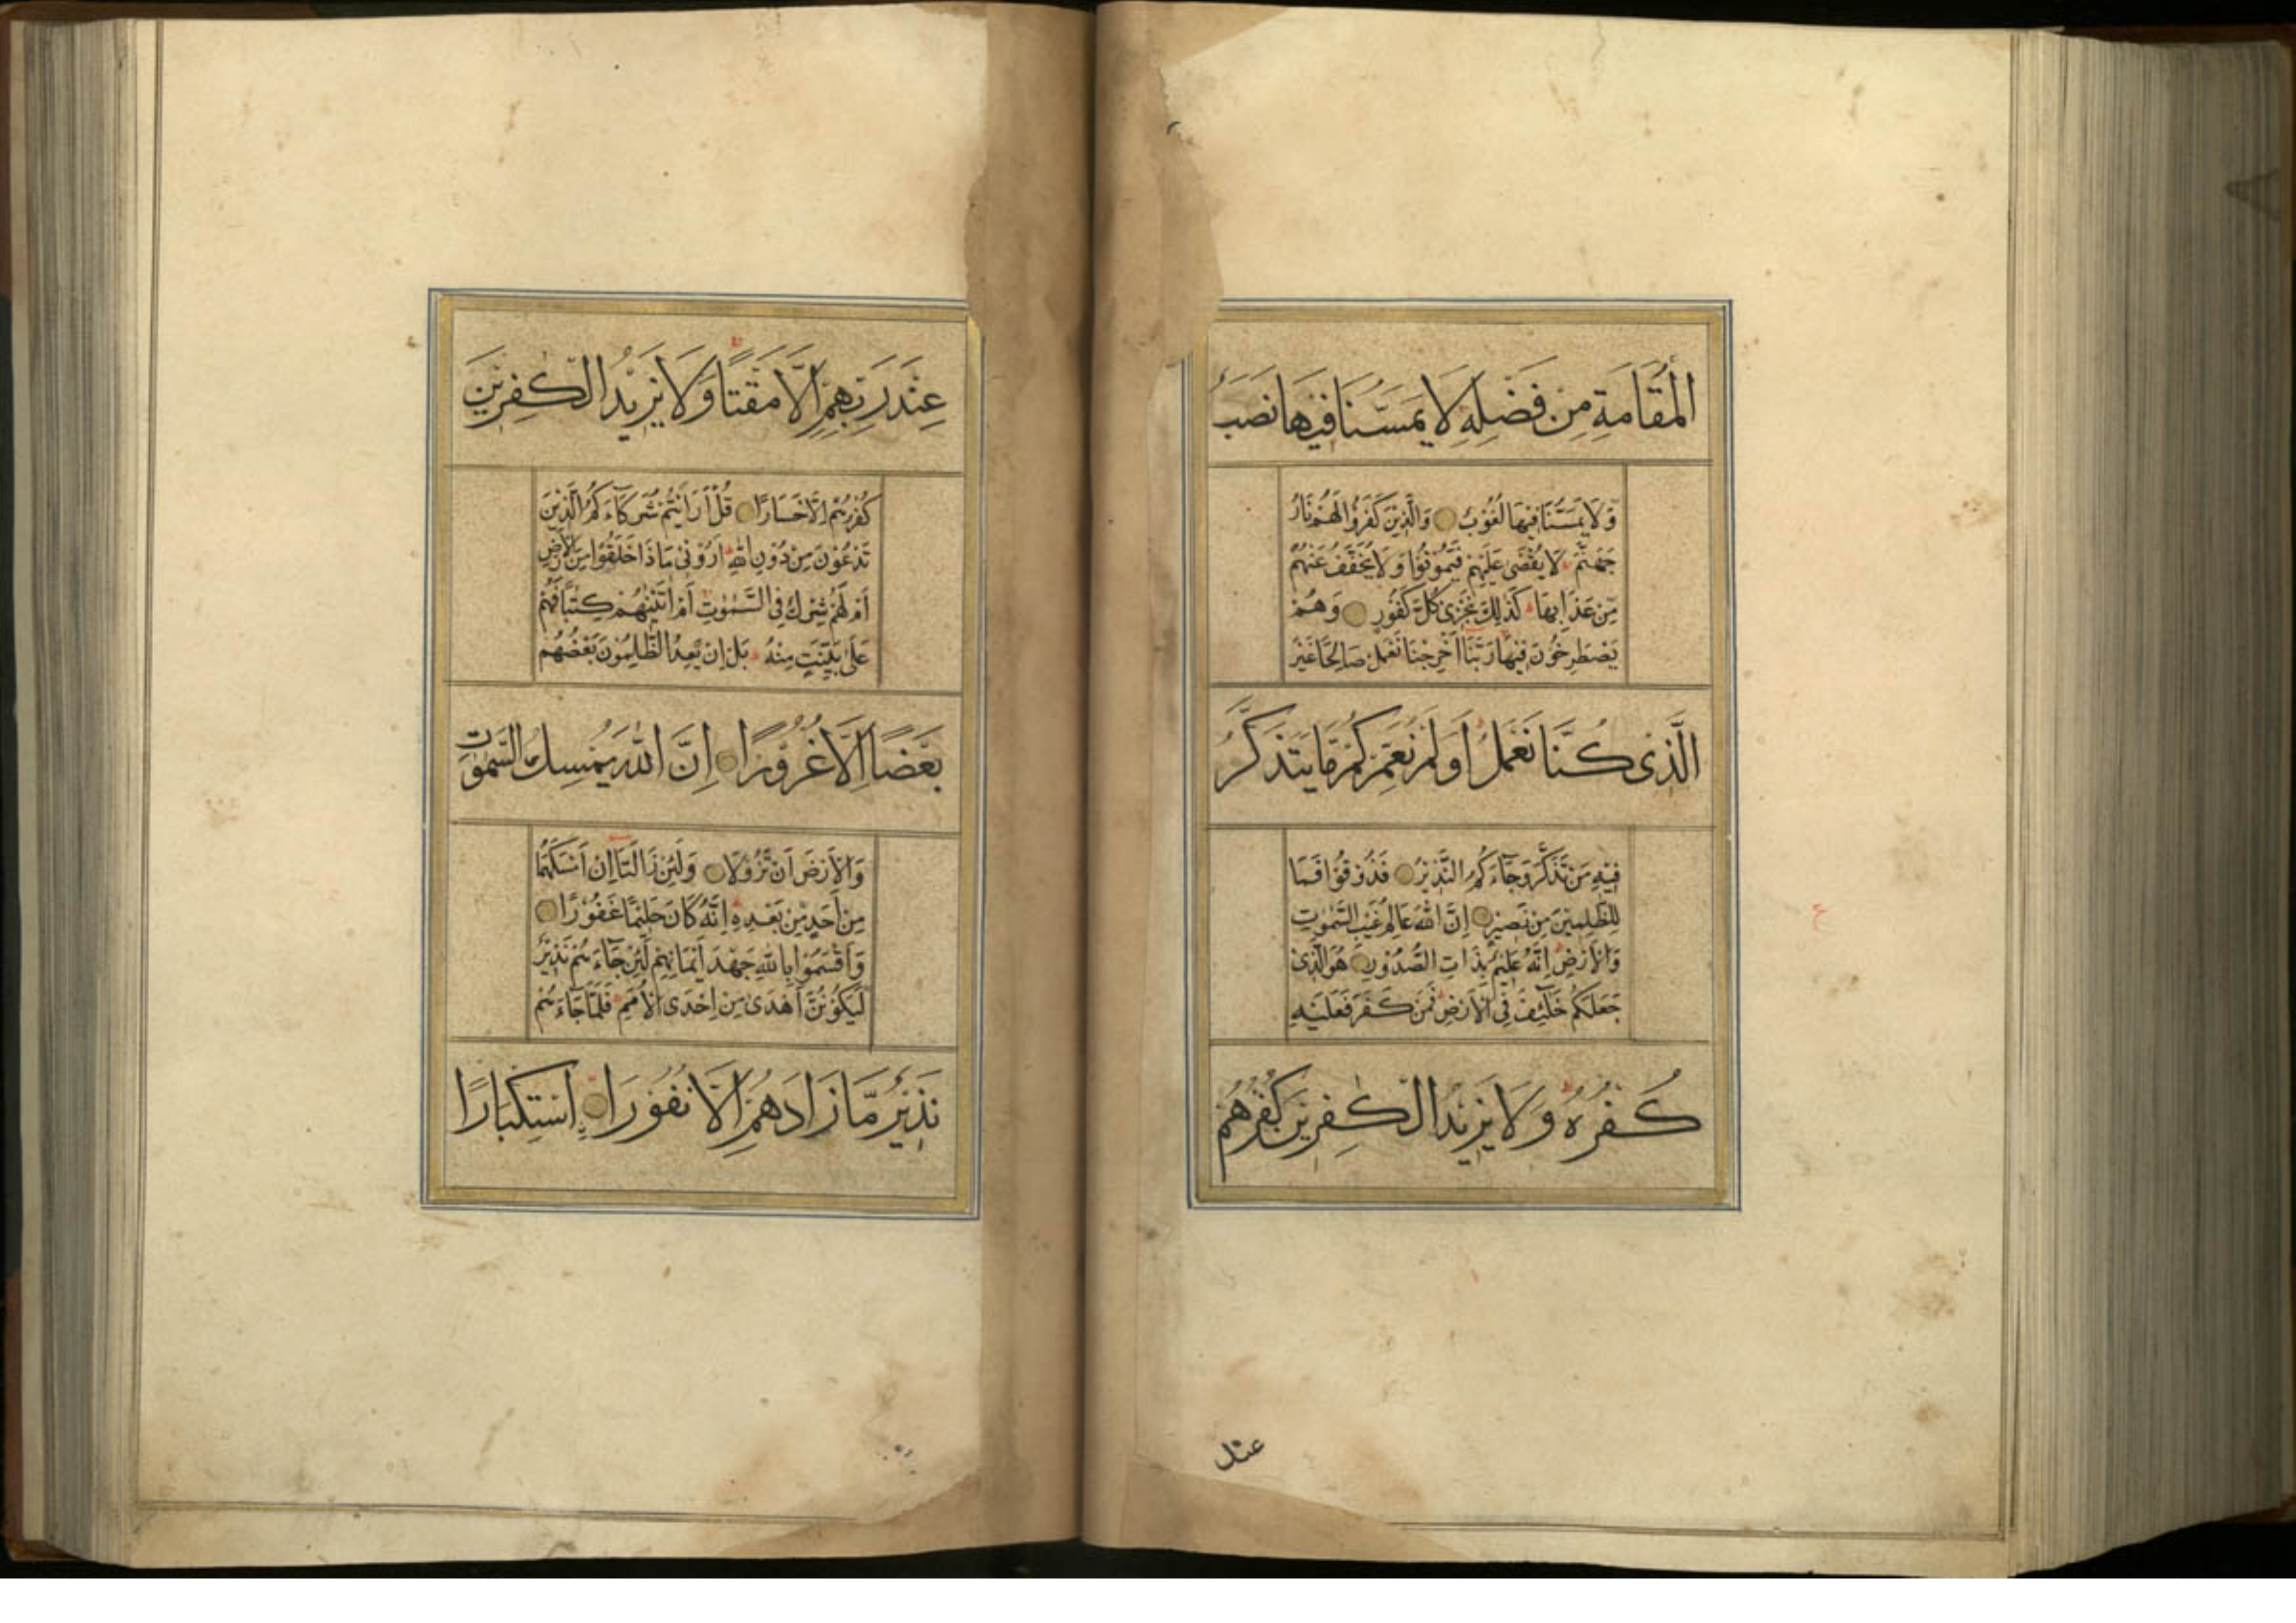 الْمُقَامَةِ مِنْ فَضْلِهِ لَا يَمَسُّنَا فِيهَا نَصَبٌ
وَلَا يَمَسُّنَا فِيهَا لُغُوْبٌ وَالَّذِيْنَ كَفَرُوْا لَهُمْ نَارُ
جَهَنَّمَ لَا يُقْضَى عَلَيْهِمْ فَيَمُوْتُوْا وَلَا يُخَفَّفُ عَنْهُمْ
مِّنْ عَذَابِهَا كَذٰلِكَ نَجْزِىْ كُلَّ كَفُوْرٍ وَهُمْ
يَصْطَرِخُوْنَ فِيْهَا رَبَّنَا اَخْرِجْنَا نَعْمَلْ صَالِحًا غَيْرَ
الَّذِىْ كُنَّا نَعْمَلُ اَوَلَمْ نُعَمِّرْكُمْ مَّا يَتَذَكَّرُ
فِيْهِ مَنْ تَذَكَّرَ وَجَآءَكُمُ النَّذِيْرُ فَذُوْقُوْا فَمَا
لِلظّٰلِمِيْنَ مِنْ نَصِيْرٍ اِنَّ اللّٰهَ عَالِمُ غَيْبِ السَّمٰوٰتِ
وَالْاَرْضِ اِنَّهُ عَلِيْمٌ بِذَاتِ الصُّدُوْرِ هُوَ الَّذِىْ
جَعَلَكُمْ خَلٰٓئِفَ فِى الْاَرْضِ فَمَنْ كَفَرَ فَعَلَيْهِ
كُفْرُهُ وَلَا يَزِيْدُ الْكٰفِرِيْنَ كُفْرُهُمْ
عند
ع
عِنْدَ رَبِّهِمْ اِلَّا مَقْتًا وَلَا يَزِيْدُ الْكٰفِرِيْنَ
كُفْرُهُمْ اِلَّا خَسَارًا قُلْ اَرَاَيْتُمْ شُرَكَآءَكُمُ الَّذِيْنَ
تَدْعُوْنَ مِنْ دُوْنِ اللّٰهِ اَرُوْنِىْ مَاذَا خَلَقُوْا مِنَ الْاَرْضِ
اَمْ لَهُمْ شِرْكٌ فِى السَّمٰوٰتِ اَمْ اٰتَيْنٰهُمْ كِتٰبًا فَهُمْ
عَلٰى بَيِّنَتٍ مِنْهُ بَلْ اِنْ يَّعِدُ الظّٰلِمُوْنَ بَعْضُهُمْ
بَعْضًا اِلَّا غُرُوْرًا اِنَّ اللّٰهَ يُمْسِكُ السَّمٰوٰتِ
وَالْاَرْضَ اَنْ تَزُوْلَا وَلَئِنْ زَالَتَآ اِنْ اَمْسَكَهُمَا
مِنْ اَحَدٍ مِّنْ بَعْدِهِ اِنَّهُ كَانَ حَلِيْمًا غَفُوْرًا
وَاَقْسَمُوْا بِاللّٰهِ جَهْدَ اَيْمَانِهِمْ لَئِنْ جَآءَهُمْ نَذِيْرٌ
لَيَكُوْنُنَّ اَهْدٰى مِنْ اِحْدَى الْاُمَمِ فَلَمَّا جَآءَهُمْ
نَذِيْرٌ مَّا زَادَهُمْ اِلَّا نُفُوْرًا اِسْتِكْبَارًا